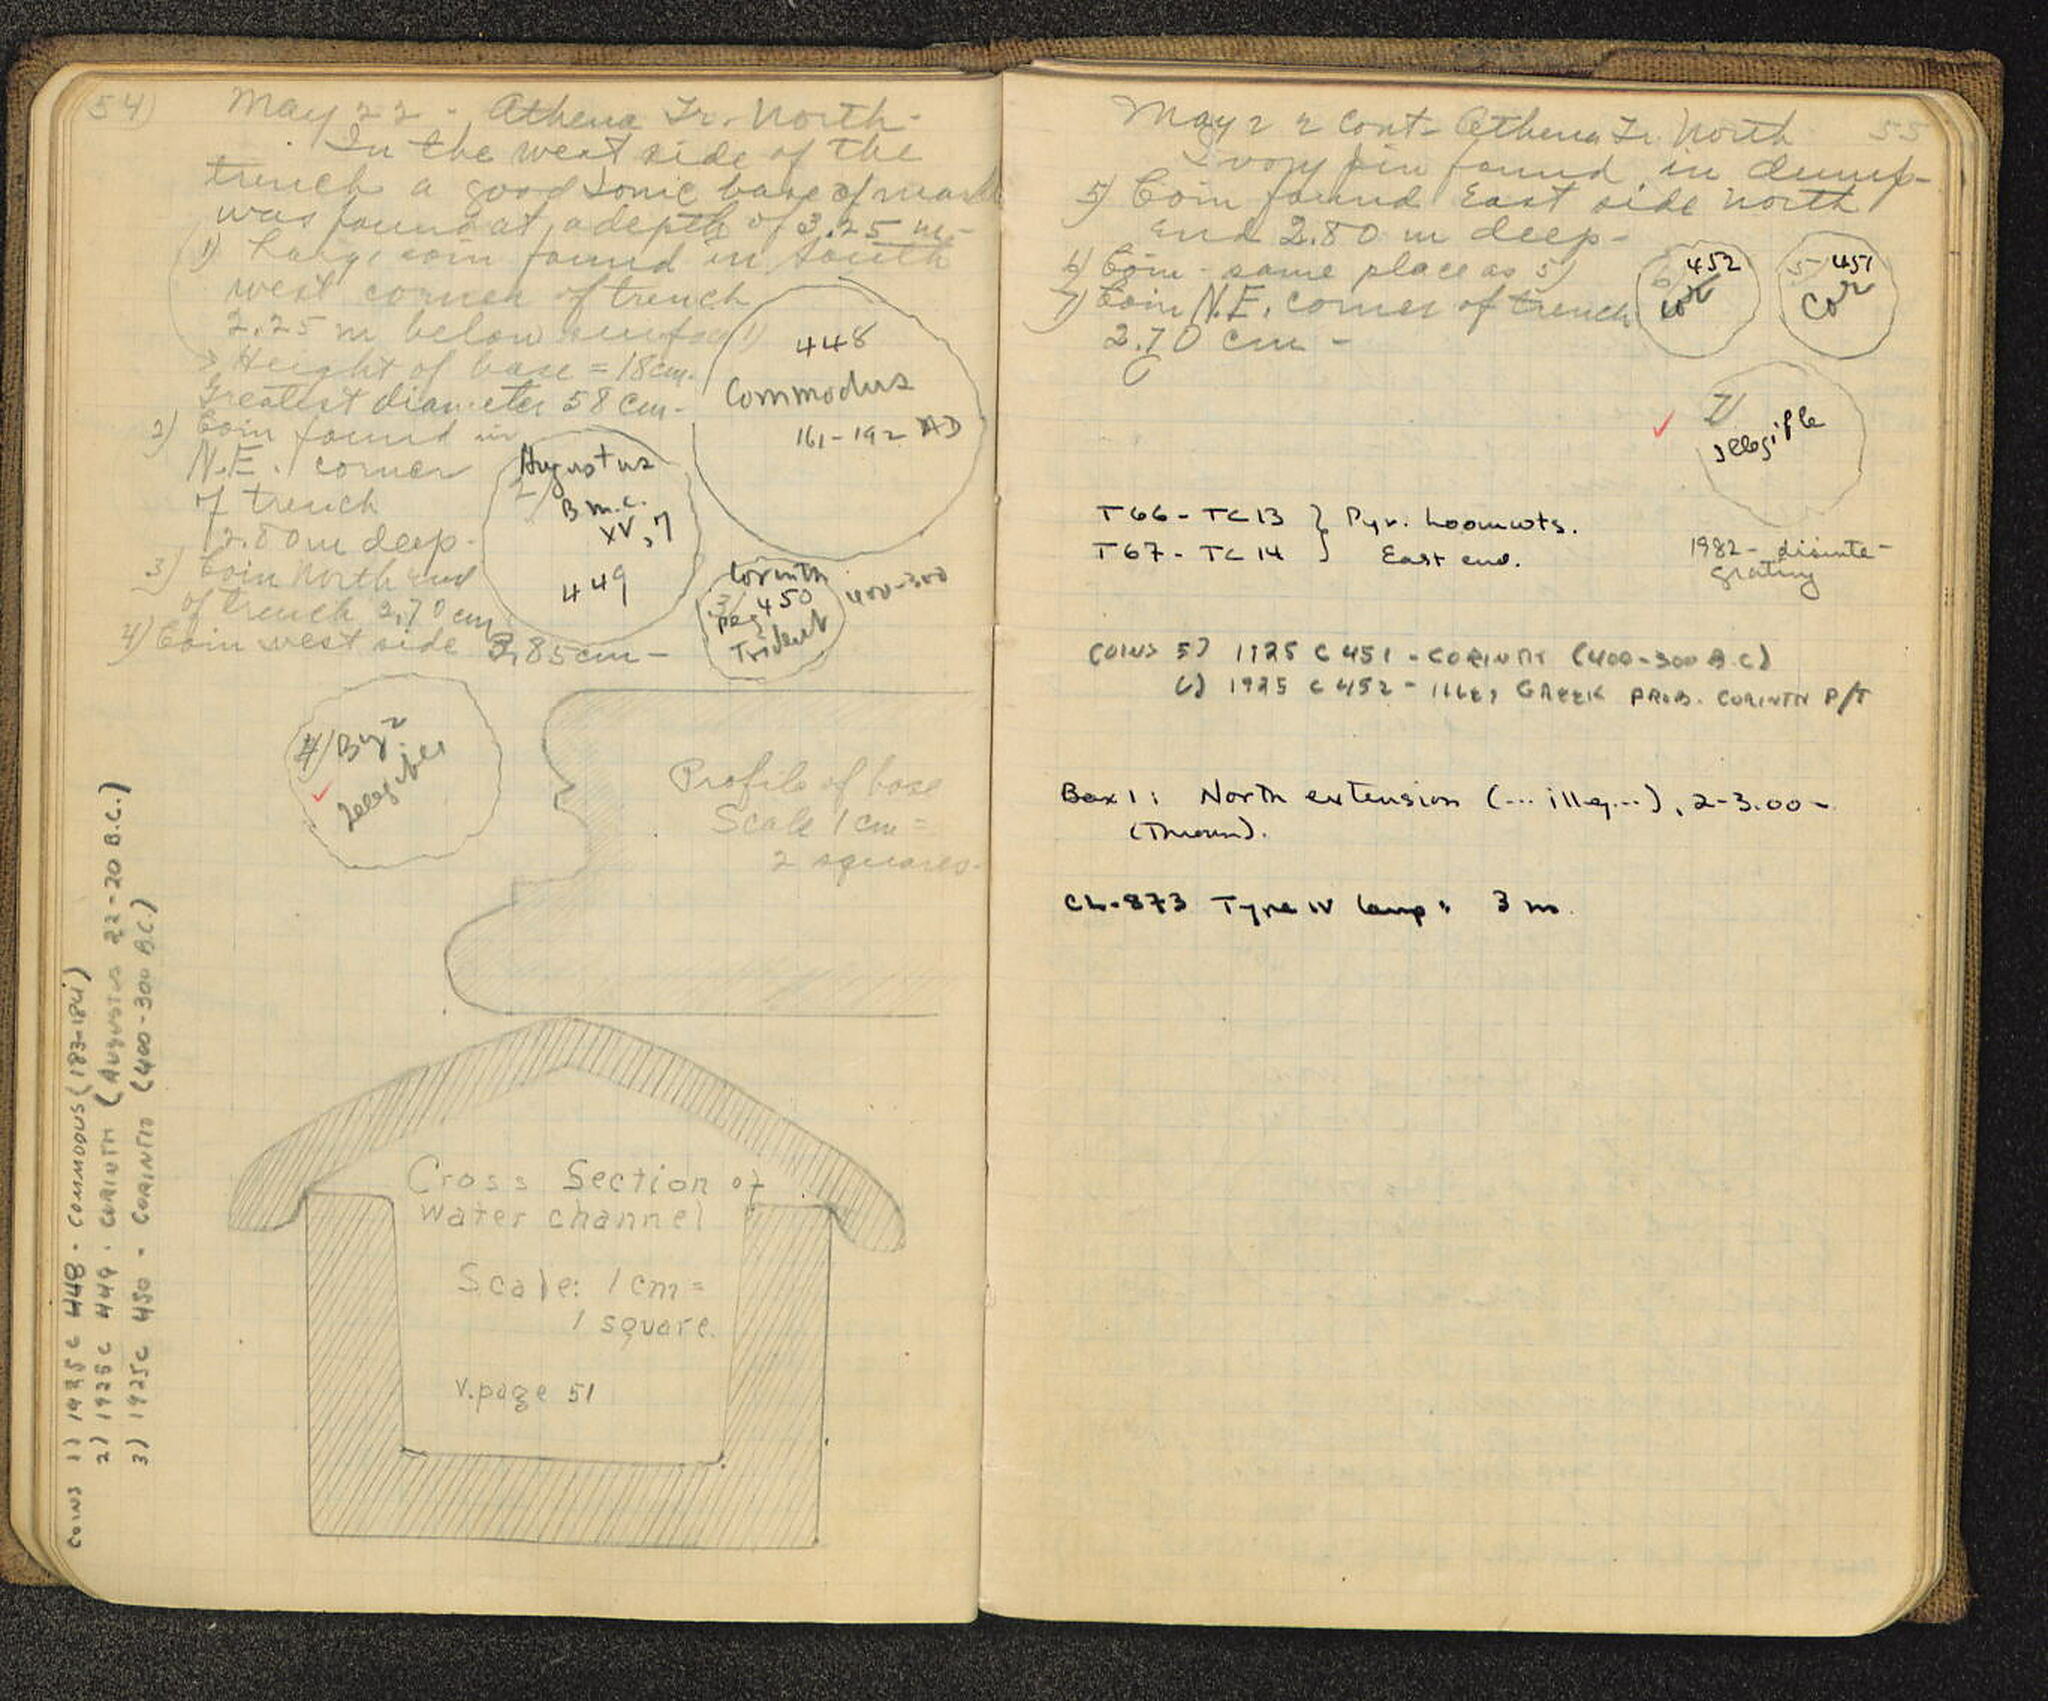 54)
May 22 - Athena Tr. North -
In the west side of the
trench a good Ionic base of marble
was found at a depth of 3.25 m. -
1) Large coin found in South
west corner of trench
2.25 m below surface 1)
Height of base = 18 cm.
Greatest diameter 58 cm -
2) Coin found in
N.E. corner
of trench
2.80 m deep -
3) Coin North end
of trench 2.70 cm
4) Coin west side 3.85 cm -
448
Commodus
161-192 AD
Augustus
2/
B m.c.
XV, 7
449
Corinth
3/ 450
Peg
Trident
400-300
4/ Byz
Illegible
Profile of base
Scale 1 cm =
2 squares -
Cross Section of
water channel
Scale: 1 cm =
1 square.
v. page 51
COINS 1) 1925 C 448 - COMMODUS (183-184)
2) 1925 C 449 - CORINTH (AUGUSTUS 22-20 B.C.)
3) 1925 C 450 - CORINTH (400-300 B.C.)
May 22 cont - Athena Tr. North 55
Ivory pin found in dump -
5) Coin found East side North
end 2.80 m deep -
6) Coin - same place as 5)
7) Coin N.E. corner of trench
2.70 cm -
6/ 452
Cor
5/ 451
Cor
7/
illegible
1982 - disinte-
grating
T66 - TC 13 } Pyr. Loomwts.
T67 - TC 14 } East end.
COINS 5) 1925 C 451 - CORINTH (400-300 B.C)
6) 1925 C 452 - ILLEG GREEK PROB. CORINTH P/T
Box 1: North extension (... illeg...), 2-3.00 -
(Thrown).
CL-873 Type IV lamp: 3 m.